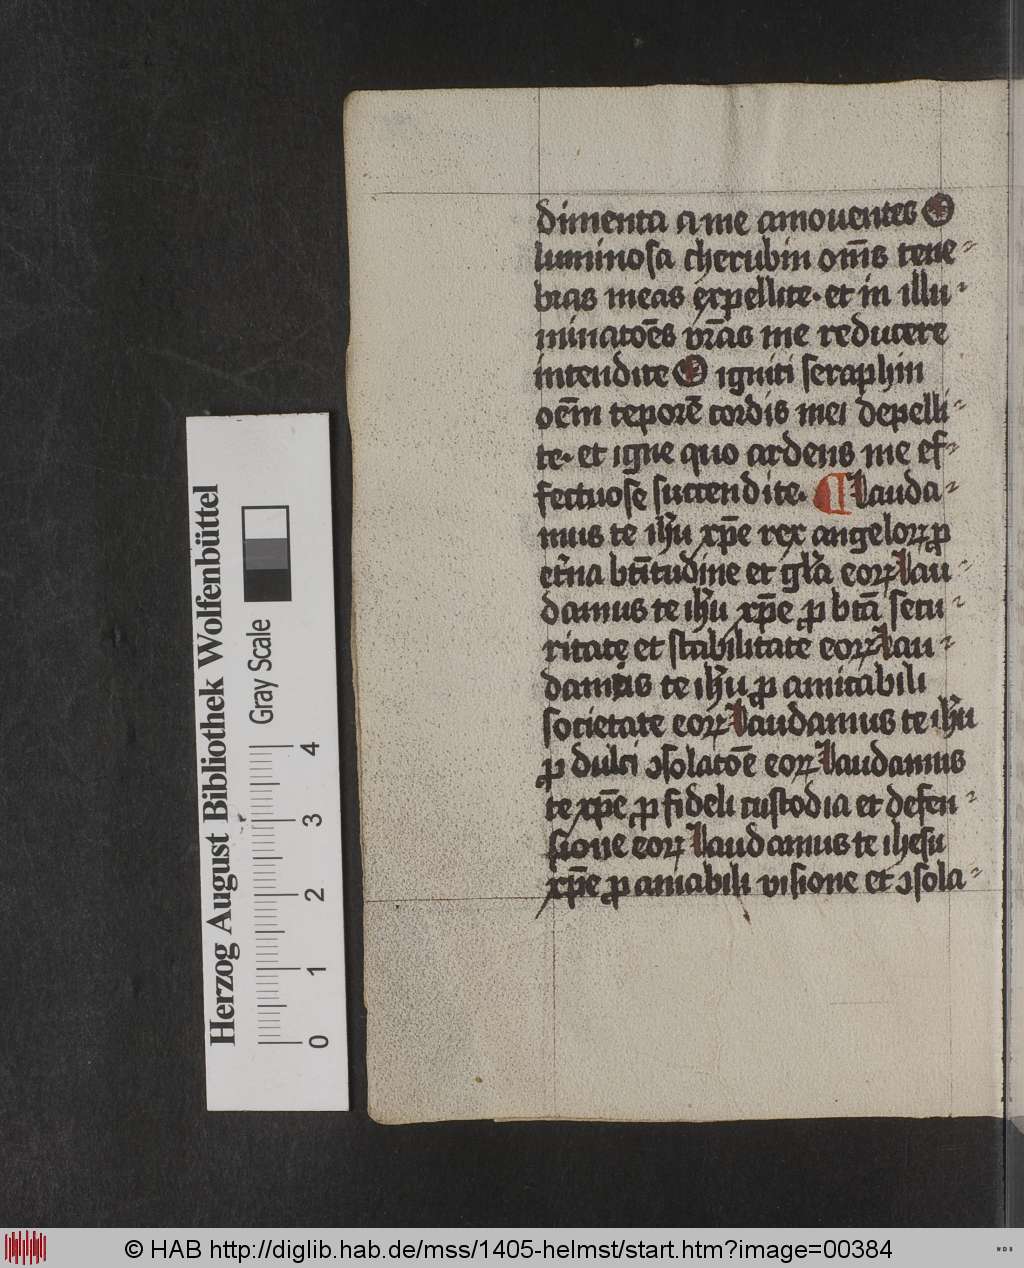 dimenta a me amouentes O
luminosa cherubin om̄s tene-
bras meas expellite. et in illu-
minatōes vr̄as me reducere
intendite O igniti seraphin
oēm teporē cordis mei depelli-
te. et igne quo ardens me ef-
fectuose succendite. ¶ lauda-
mus te ihū xp̄e rex angeloꝝ ꝓ
et̄na bt̄itudine et gl̄a eoꝝ lau-
damus te ihū xp̄e ꝓ bt̄a secu-
ritate et stabilitate eoꝝ lau-
damus te ihū ꝓ amicabili
societate eoꝝ laudamus te ihū
ꝓ dulci ↄsolatōe eoꝝ laudamus
te xp̄e ꝓ fideli custodia et defen-
sione eoꝝ laudamus te ihesu
xp̄e ꝓ amabili visione et ↄsola-
Herzog August Bibliothek Wolfenbüttel
Gray Scale
0 1 2 3 4
© HAB http://diglib.hab.de/mss/1405-helmst/start.htm?image=00384